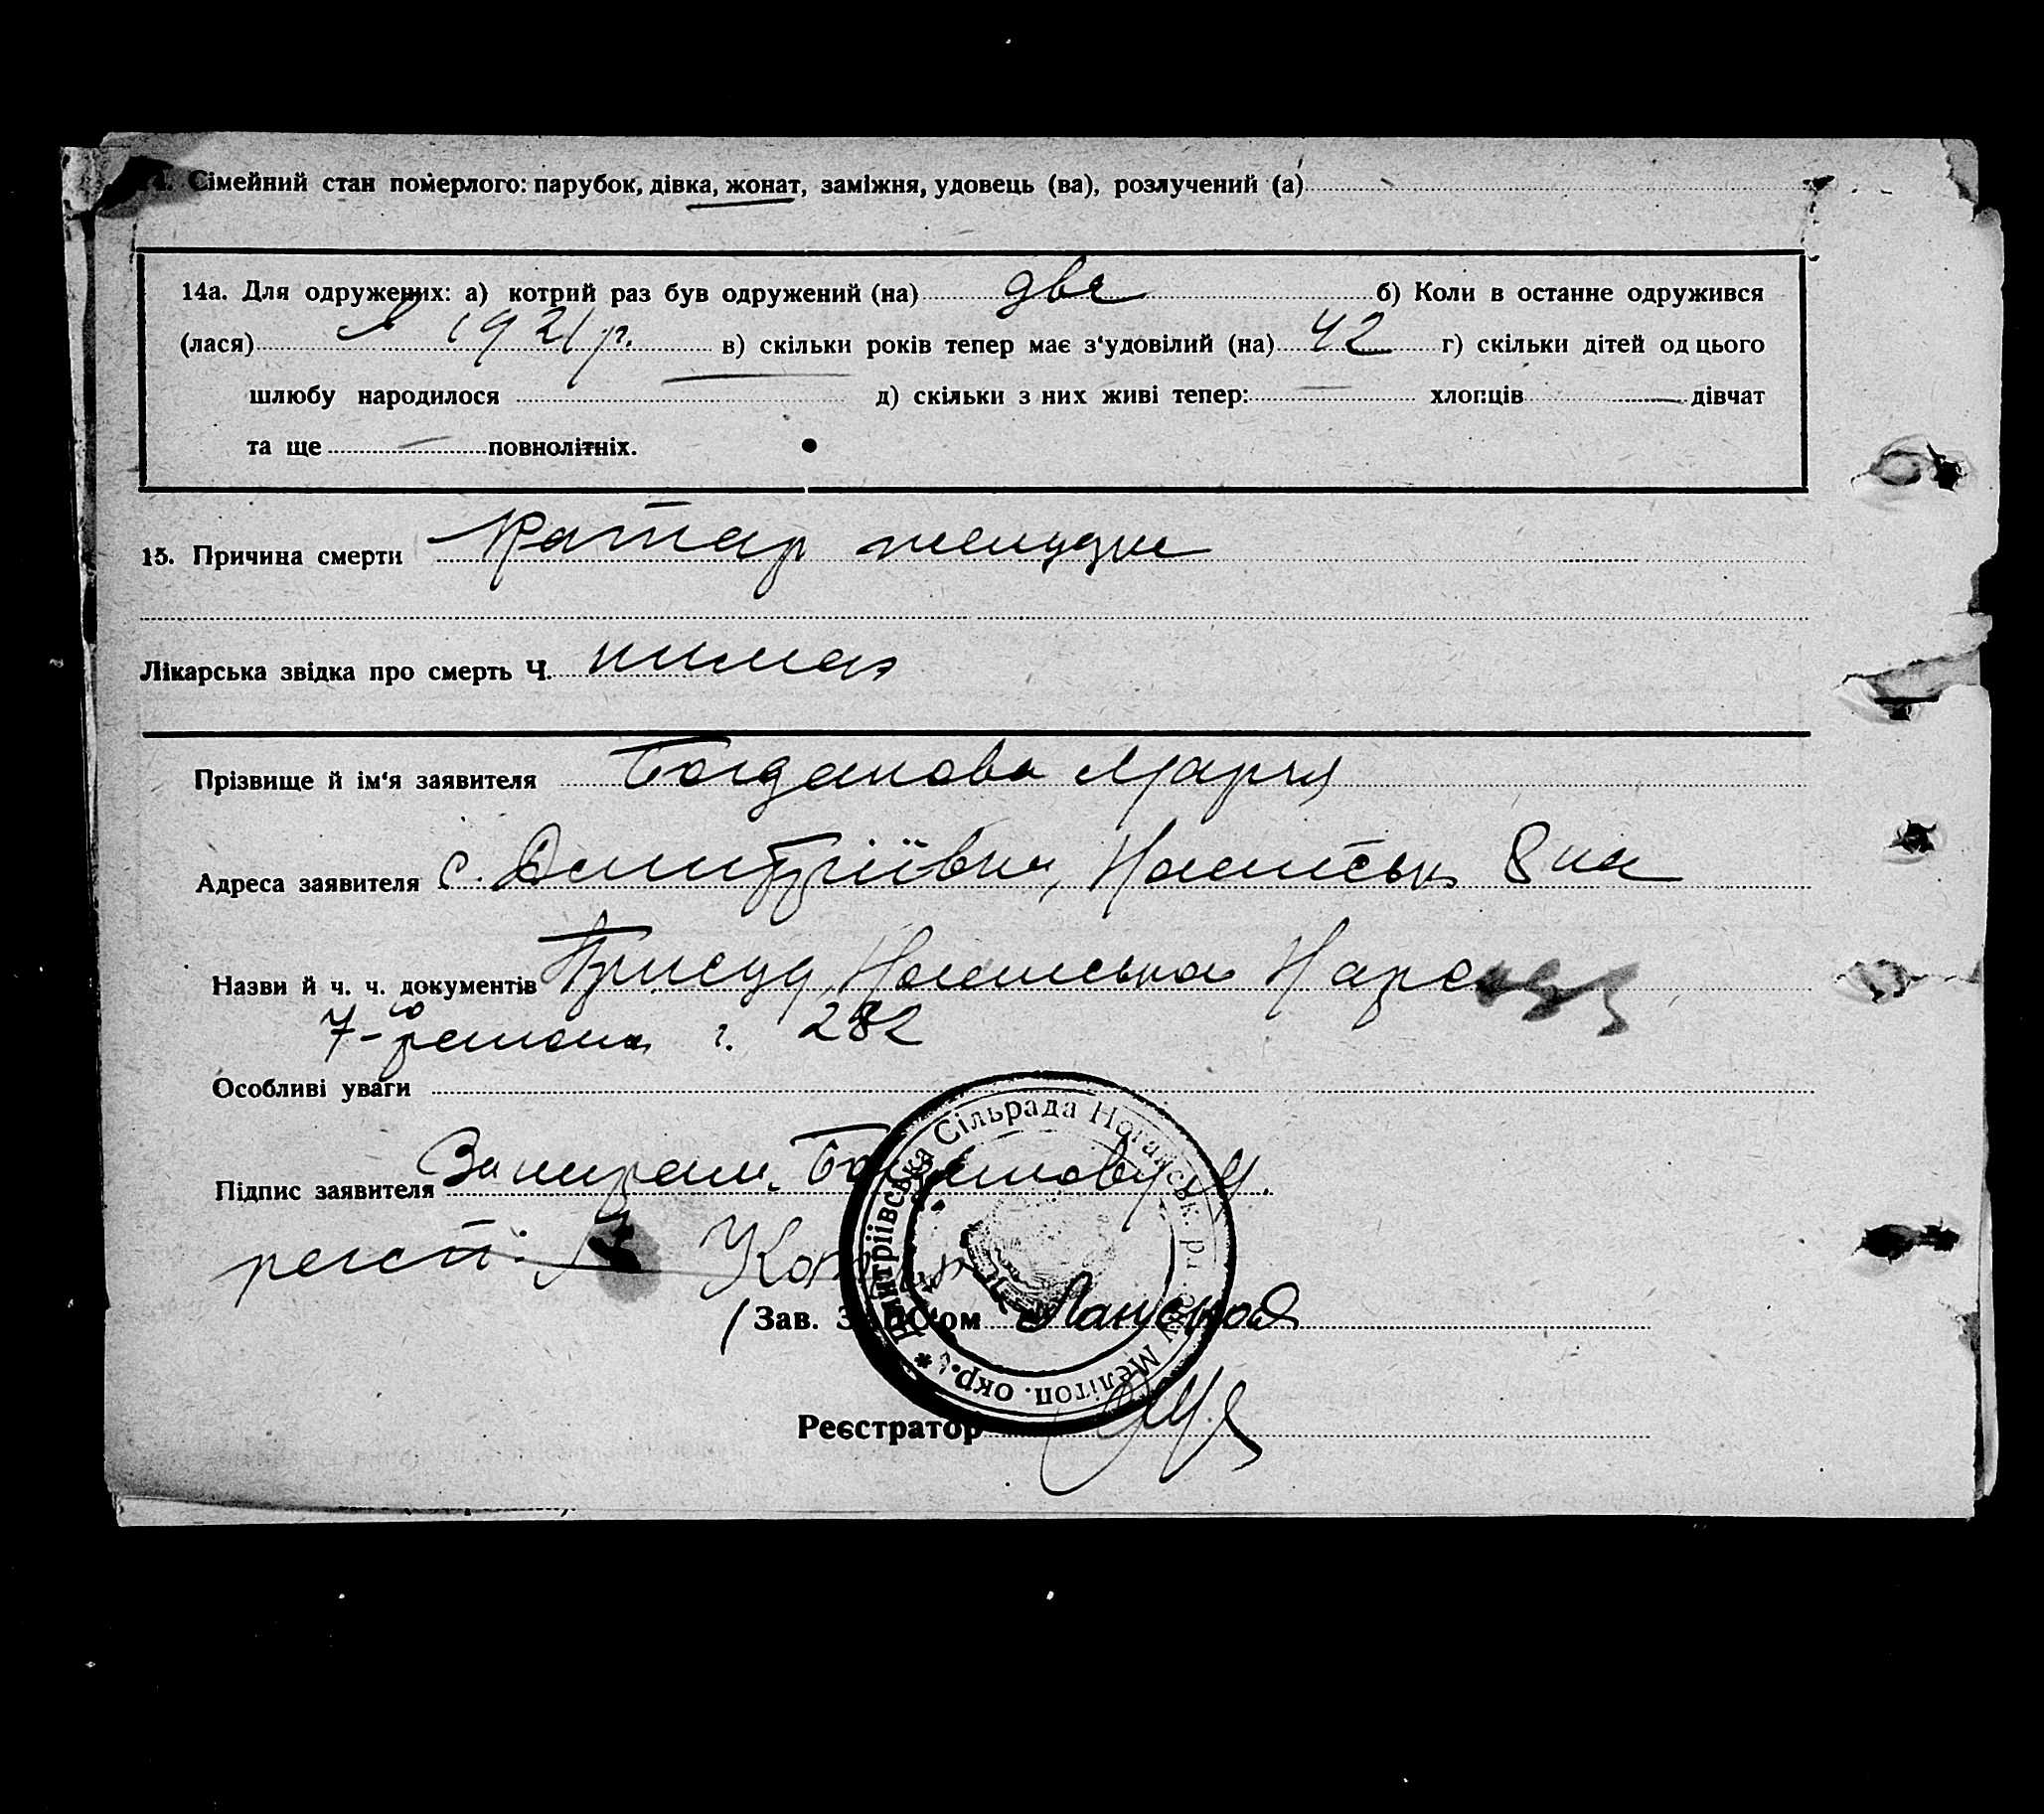 14. Сімейний стан померлого: парубок, дівка, жонат, заміжня, удовець (ва), розлучений (а)
14а. Для одружених: а) котрий раз був одружений (на) два б) Коли в останне одружився
(лася) в 1921 р. в) скільки років тепер має з‘удовілий (на) 42 г) скільки дітей од цього
шлюбу народилося — д) скільки з них живі тепер: — хлопців — дівчат
та ще — повнолітніх.
15. Причина смерти Катар желудка
Лікарська звідка про смерть Ч. нимає
Прізвище й ім‘я заявителя Богданова Мария
Адреса заявителя с. Дмитріївка, Ногайськ
Назви й ч. ч. документів Присуд Ногайська Нарсуду
7-го района г. 282
Особливі уваги
Підпис заявителя Богданову М.
Зав. ЗАГС‘ом Лановой
Реєстратор
* Дмитріївська Сільрада Ногайськ. р. Мелітоп. окр.